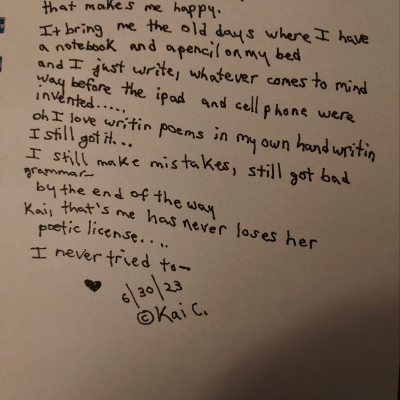 that makes me happy.
It bring me the old days where I have
a notebook and a pencil on my bed
and I just write, whatever comes to mind
way before the ipad and cell phone were
invented.....
oh I love writin poems in my own handwritin
I still got it...
I still make mistakes, still got bad
grammar~
by the end of the way
Kai, that's me has never loses her
poetic license....
I never tried to~
♥ 6/30/23
©Kai C.